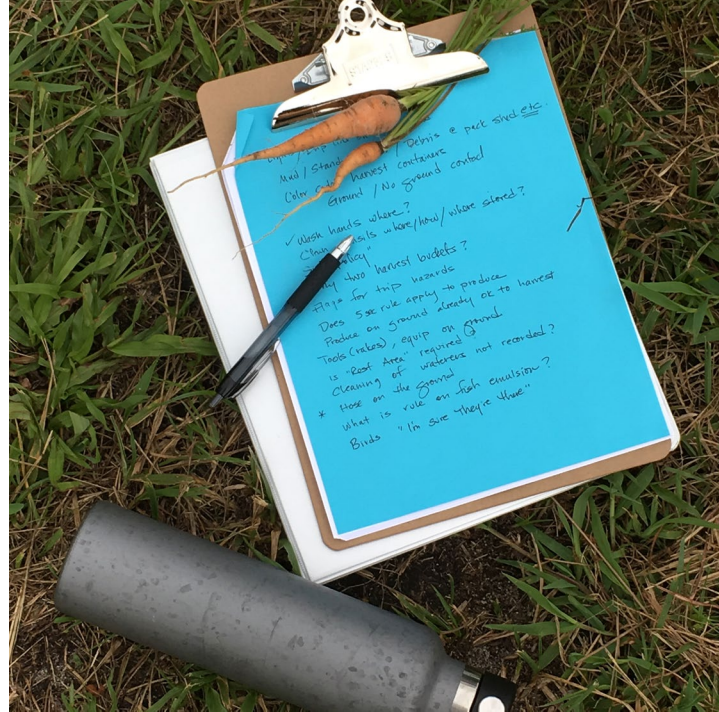 Mud / Stand / Debris @ pack shed etc.
Color harvest containers
Ground / No ground control
✓ Wash hands where?
where/how/where stored?
Policy"
two harvest buckets?
Flags for trip hazards
Does 5x rule apply to produce
Produce on ground already ok to harvest
Tools (rakes), equip on ground
is "Rest Area" required
Cleaning of waterers not recorded?
* Hose on the ground
what is rule on fish emulsion?
Birds "I'm sure they're there"